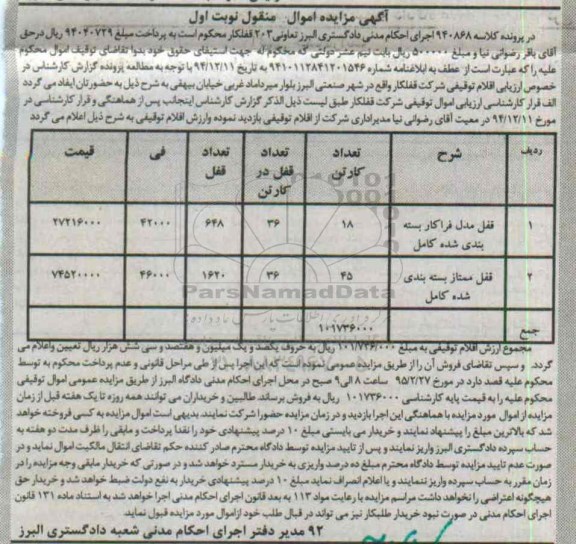 آگهی مزایده اموال منقول نوبت اول
در پرونده کلاسه ۹۴۰۸۶۸ اجرای احکام مدنی دادگستری البرز تعاونی ۲۰۳ قفلکار محکوم است به پرداخت مبلغ ۹۴۰۴۰۷۲۹ ریال درحق
آقای باقر رضوانی نیا و مبلغ ۵۰۰۰۰۰ ریال بابت نیم عشر دولتی که محکوم له جهت استیفای حقوق خود بدوا تقاضای توقیف اموال محکوم
علیه را که عبارت است از عطف به ابلاغنامه شماره ۹۴۱۰۱۱۲۸۴۱۲۰۱۵۴۶ به تاریخ ۹۴/۱۲/۱۱ با توجه به مطالعه پرونده گزارش کارشناس در
خصوص ارزیابی اقلام توقیفی شرکت قفلکار واقع در شهر صنعتی البرز بلوار میرداماد غربی خیابان بیهقی به شرح ذیل به حضورتان ایفاد می گردد
الف قرار کارشناسی ارزیابی اموال توقیفی شرکت قفلکار طبق لیست ذیل الذکر گزارش کارشناس اینجانب پس از هماهنگی و قرار کارشناسی در
مورخ ۹۴/۱۲/۱۱ در معیت آقای رضوانی نیا مدیراداری شرکت از اقلام توقیفی بازدید نموده وارزش اقلام توقیفی به شرح ذیل اعلام می گردد
ردیف شرح تعداد کارتن تعداد قفل در کارتن تعداد قفل فی قیمت
۱ قفل مدل فراکار بسته بندی شده کامل ۱۸ ۳۶ ۶۴۸ ۴۲۰۰۰ ۲۷۲۱۶۰۰۰
۲ قفل ممتاز بسته بندی شده کامل ۴۵ ۳۶ ۱۶۲۰ ۴۶۰۰۰ ۷۴۵۲۰۰۰۰
ParsNamadData
جمع ۱۰۱۷۳۶۰۰۰
مجموع ارزش اقلام توقیفی به مبلغ ۱۰۱/۷۳۶/۰۰۰ ریال به حروف یکصد و یک میلیون و هفتصد و سی شش هزار ریال تعیین واعلام می
گردد. و سپس تقاضای فروش آن را از طریق مزایده عمومی نموده است که این اجرا پس از طی مراحل قانونی و عدم پرداخت محکوم به توسط
محکوم علیه قصد دارد در مورخ ۹۵/۲/۲۷ ساعت ۸ الی ۹ صبح در محل اجرای احکام مدنی دادگاه البرز از طریق مزایده عمومی اموال توقیفی
محکوم علیه را به قیمت پایه کارشناسی ۱۰۱۷۳۶۰۰۰ ریال به فروش برساند. طالبین و خریداران می توانند همه روزه تا یک هفته قبل از زمان
مزایده از اموال مورد مزایده با هماهنگی این اجرا بازدید و در زمان مزایده حضورا شرکت نمایند. بدیهی است اموال مزایده به کسی فروخته خواهد
شد که بالاترین مبلغ را پیشنهاد نمایند و خریدار می بایستی مبلغ ۱۰ درصد پیشنهادی خود را نقدا پرداخت و مابقی را ظرف مدت دو هفته به
حساب سپرده دادگستری البرز واریز نمایند و پس از تایید مزایده توسط دادگاه محترم صادر کننده حکم تقاضای انتقال مالکیت اموال نماید و در
صورت عدم تایید مزایده توسط دادگاه محترم مبلغ ده درصد واریزی به خریدار مسترد خواهد شد و در صورتی که خریدار مابقی وجه مزایده را در
زمان مقرر به حساب سپرده واریز ننمایند و یا اعلام انصراف نماید مبلغ ۱۰ درصد پیشنهادی خریدار به نفع دولت ضبط خواهد شد و خریدار حق
هیچگونه اعتراضی را نخواهد داشت مراسم مزایده با رعایت مواد ۱۱۳ به بعد قانون اجرای احکام مدنی اجرا خواهد شد به استناد ماده ۱۳۱ قانون
اجرای احکام مدنی در صورت نبود خریدار طلبکار نیز می تواند در قبال طلب خود ازاموال مورد مزایده قبول نماید.
۹۲ مدیر دفتر اجرای احکام مدنی شعبه دادگستری البرز